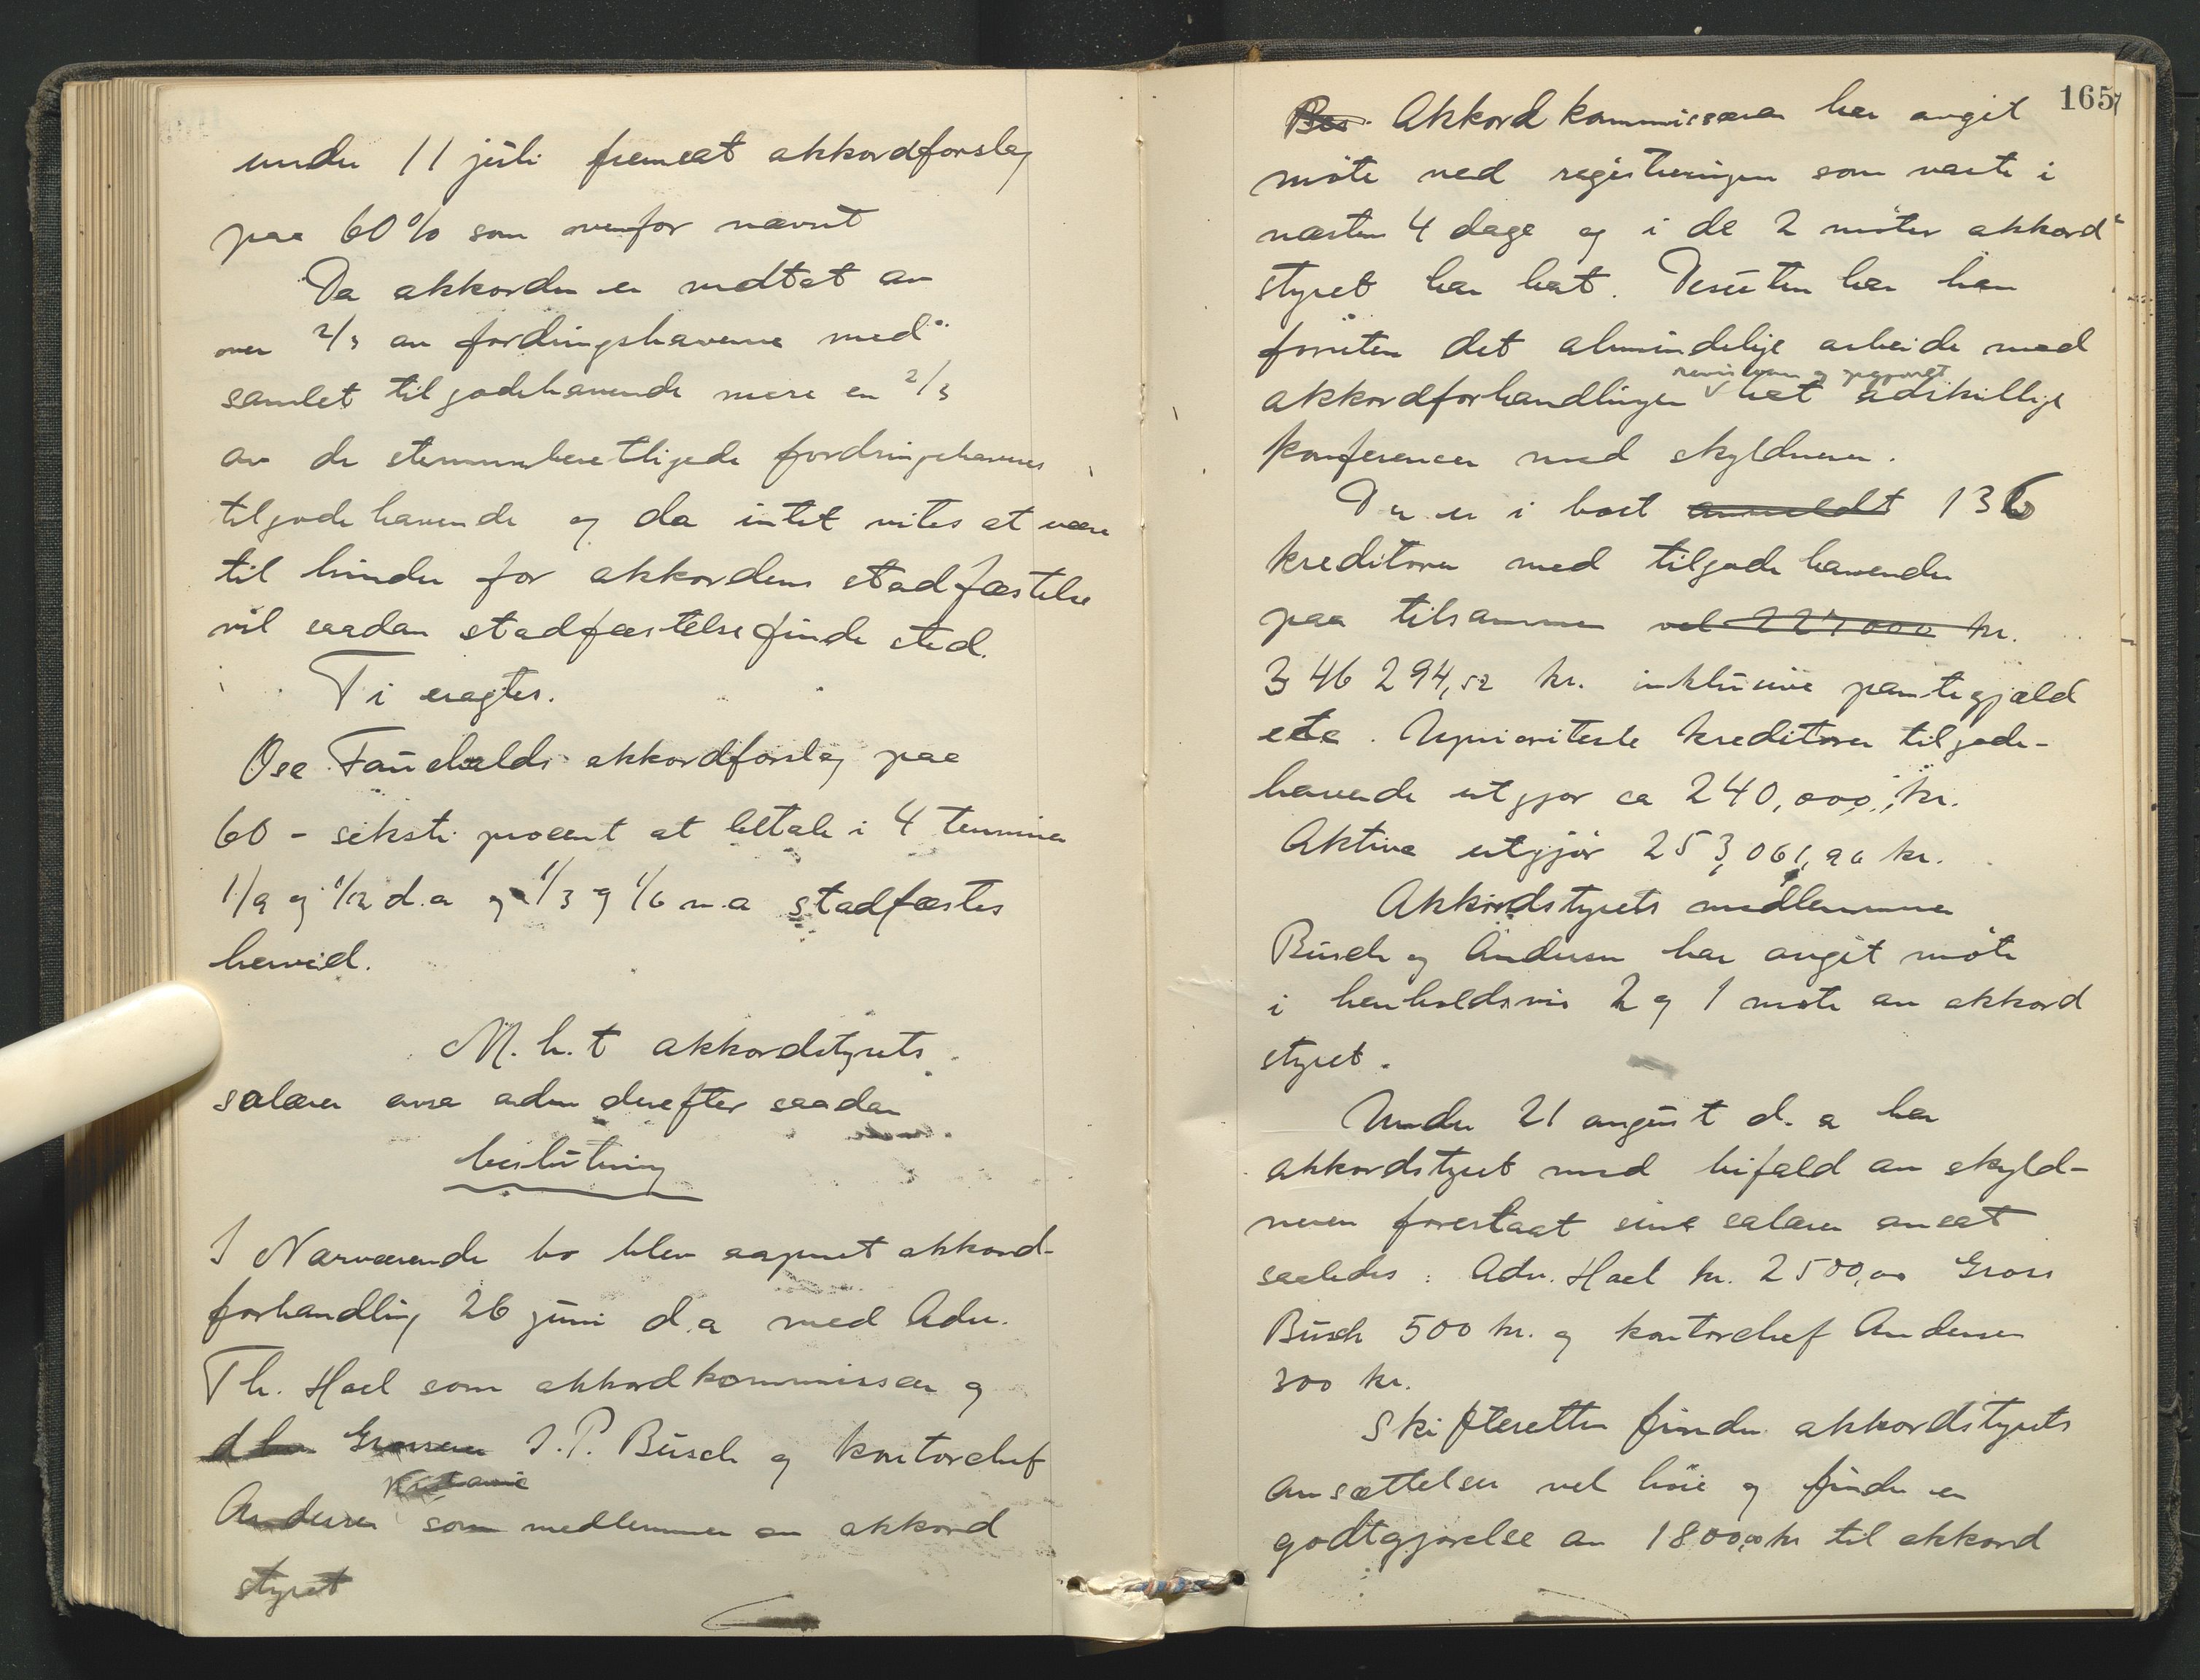 under 11 juli fremsat akkordforslag
paa 60% som ovenfor nævnt
Da akkorden er vedtat av
over 2/3 av fordringshaverne med
samlet tilgodehavende mere en 2/3
av de stemmeberettigede fordringshaveres
tilgodehavende og da intet vites at være
til hinder for akkordens stadfæstelse
vil saadan stadfæstelse finde sted.
Ti eragtes.
Ose Fauchalds akkordforslag paa
60 - seksti procent at betale i 4 terminer
1/9 og 1/12 d.a og 1/3 og 1/6 n.a stadfæstes
herved.
M.h.t akkordstyrets
salærer avsaaes derefter saadan
beslutning
I Nærværende bo blev aapnet akkord-
forhandling 26 juni d.a med Adv.
Th. Hael som akkordkommissær og
Grosserer J.P. Busch og kontorchef
Andersen Kristiania som medlemmer av akkord
styret
165
Akkordkommissæren har avgit
møte ved registreringen som varte i
næsten 4 dage og i de 2 møter akkord-
styret har hat. Desuten har han
foruten det almindelige arbeide med
akkordforhandlingen hat adskillige
revisionen og
konferencer med skyldneren.
Der er i boet anmeldt 136
kreditorer med tilgodehavender
paa tilsammen vel 227000 kr.
346 294,52 kr. inklusive pantegjæld
etc. Uprioriterte kreditorer tilgode-
havende utgjør ca 240,000,- kr.
Aktiva utgjør 253,061,96 kr.
Akkordstyrets medlemmer
Busch og Andersen har avgit møte
i henholdsvis 2 og 1 møte av akkord
styret.
Under 21 august d. a har
akkordstyret med bifald av skyld-
neren foreslaat sine salærer ansat
saaledes: Adv. Hael kr. 2500,00 Gross
Busch 500 kr. og kontorchef Andersen
300 kr.
Skifteretten finder akkordstyrets
ansættelser vel høie og finder en
godtgjørelse av 1800,00 kr til akkord